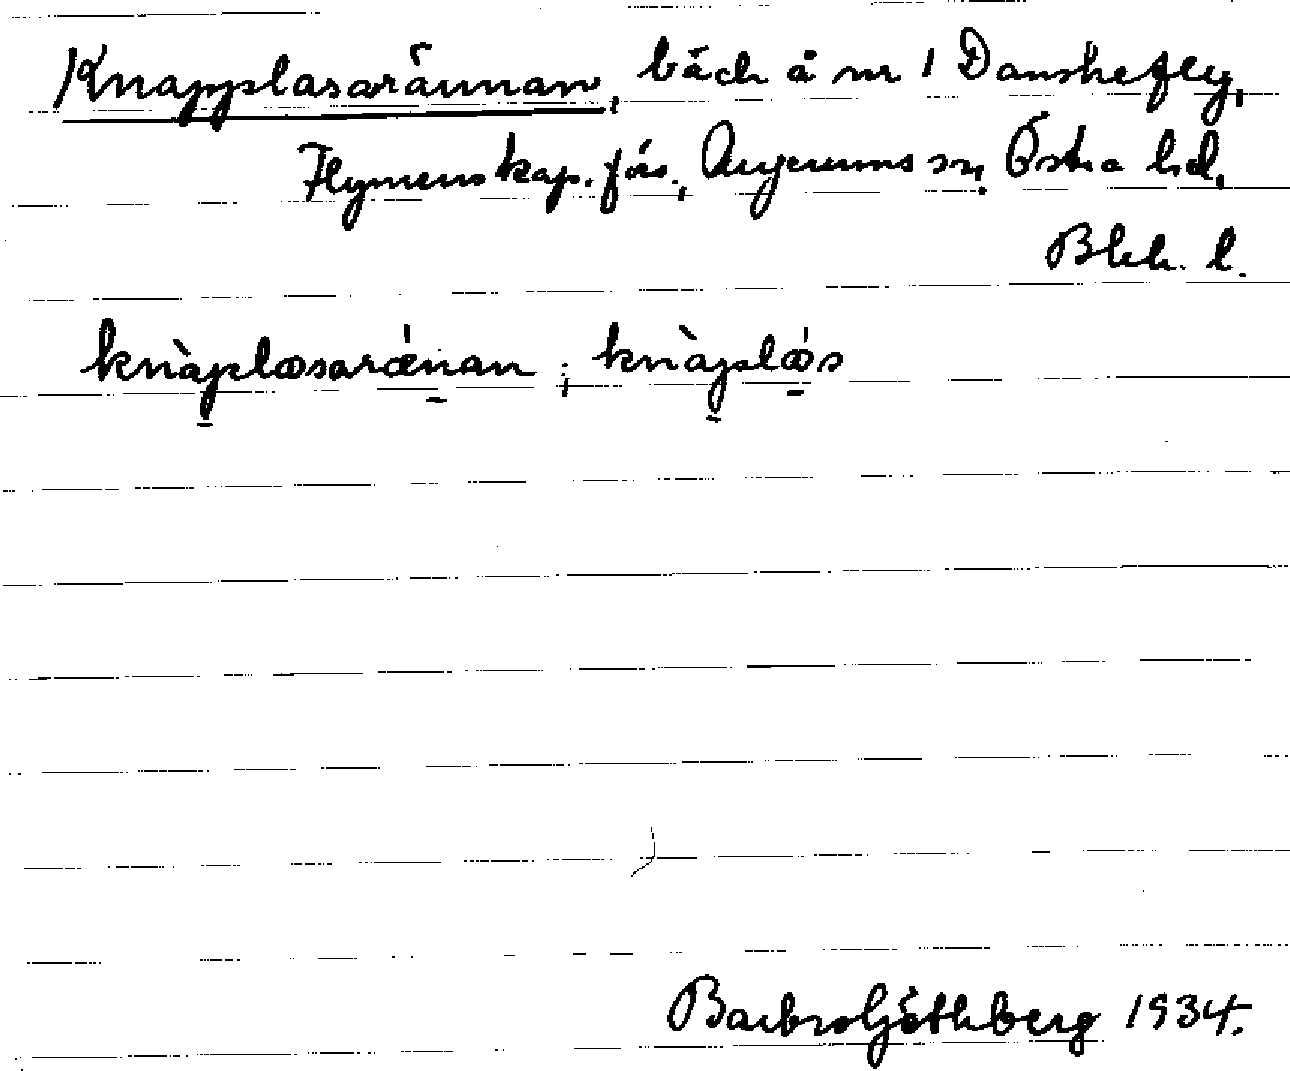 Knapplasarännan, bäck å nr 1 Danskefly,
Flymens kap. förs., Augerums sn, Östra hd,
Blek. l.
knàplosarǽnan ; knàplǿs
Barbro Göthberg 1934.